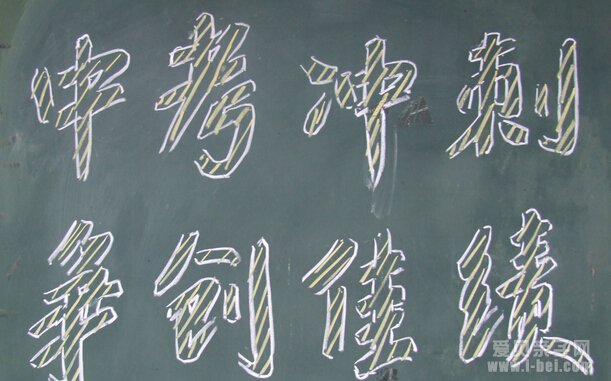 中考冲刺
争创佳绩
爱贝亲子网
www.i-bei.com